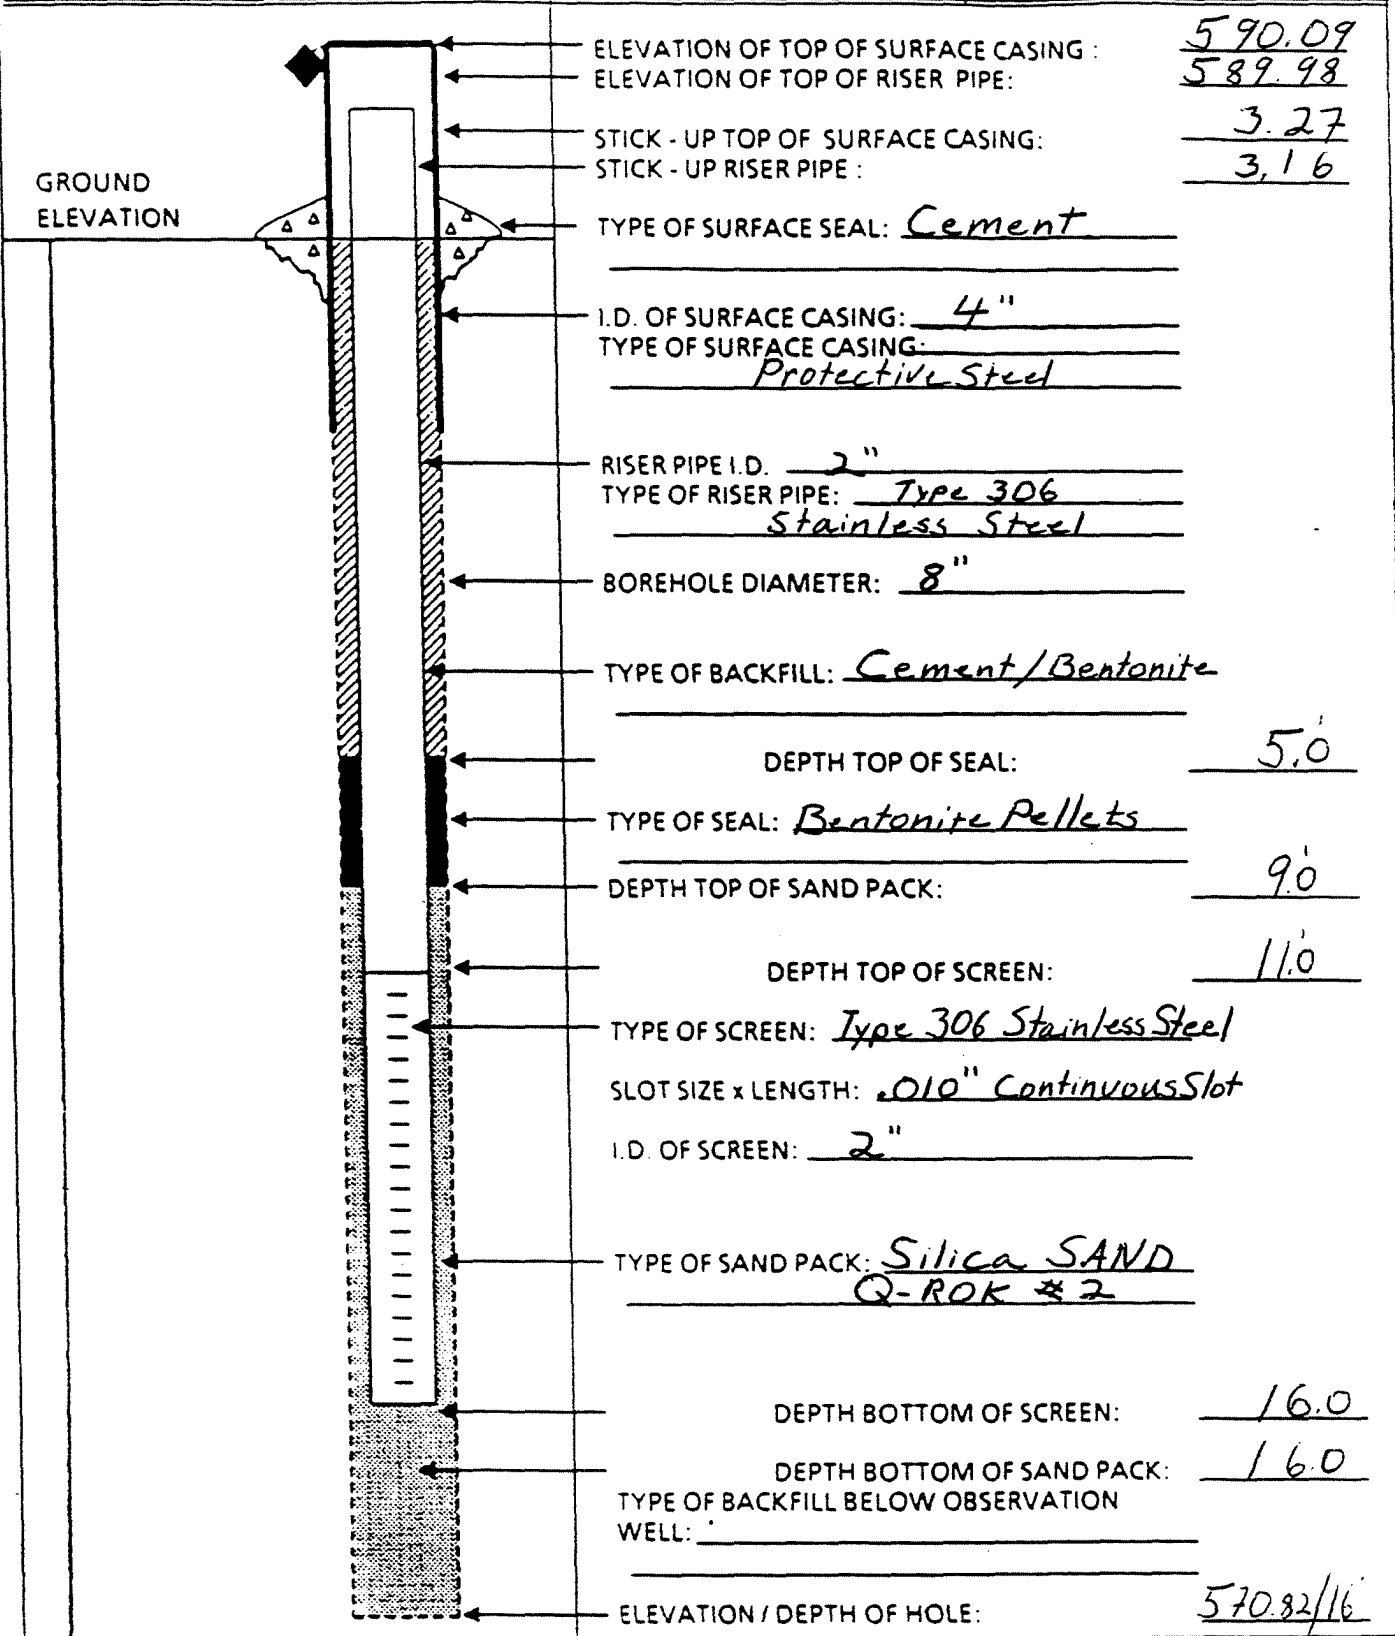 ELEVATION OF TOP OF SURFACE CASING : 590.09
ELEVATION OF TOP OF RISER PIPE: 589.98
STICK - UP TOP OF SURFACE CASING: 3.27
STICK - UP RISER PIPE : 3.16
GROUND
ELEVATION
TYPE OF SURFACE SEAL: Cement
I.D. OF SURFACE CASING: 4"
TYPE OF SURFACE CASING:
Protective Steel
RISER PIPE I.D. 2"
TYPE OF RISER PIPE: Type 306
Stainless Steel
BOREHOLE DIAMETER: 8"
TYPE OF BACKFILL: Cement/Bentonite
DEPTH TOP OF SEAL: 5.0'
TYPE OF SEAL: Bentonite Pellets
DEPTH TOP OF SAND PACK: 9.0'
DEPTH TOP OF SCREEN: 11.0'
TYPE OF SCREEN: Type 306 Stainless Steel
SLOT SIZE x LENGTH: .010" Continuous Slot
I.D. OF SCREEN: 2"
TYPE OF SAND PACK: Silica SAND
Q-ROK #2
DEPTH BOTTOM OF SCREEN: 16.0
DEPTH BOTTOM OF SAND PACK: 16.0
TYPE OF BACKFILL BELOW OBSERVATION
WELL:
ELEVATION / DEPTH OF HOLE: 570.82/16